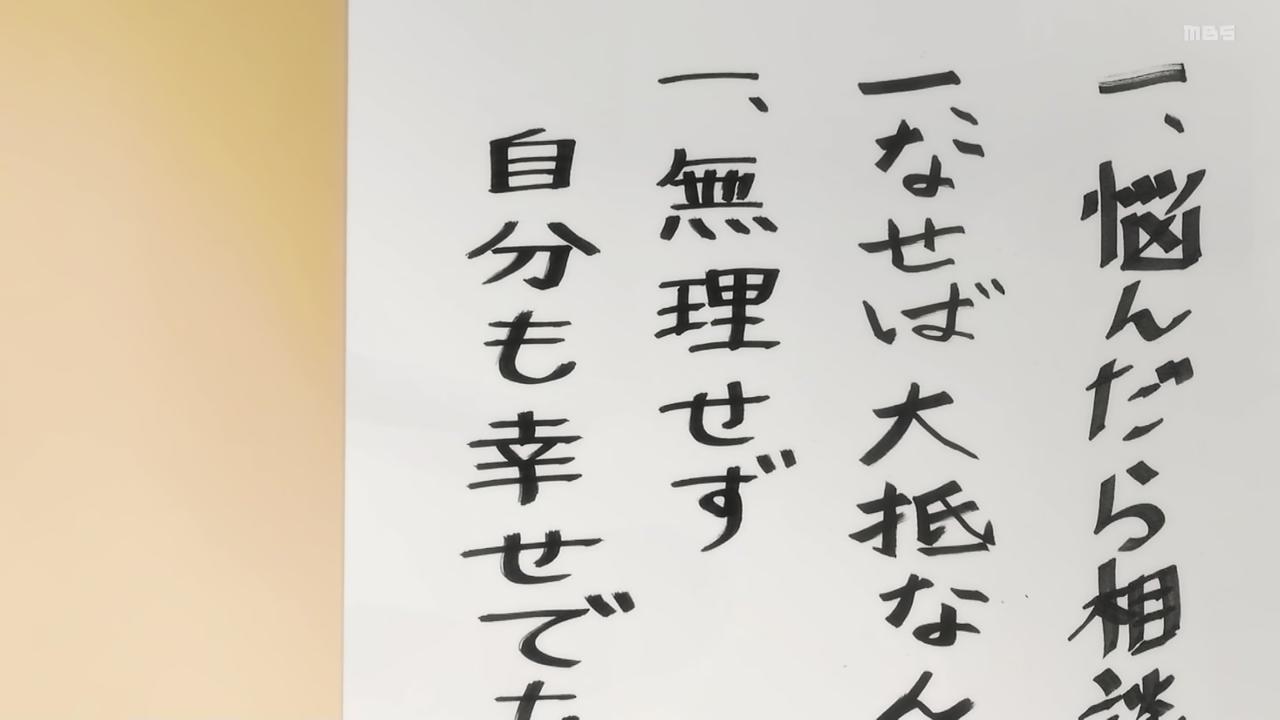 一、悩んだら相談
一、なせば大抵なん
一、無理せず
自分も幸せで
MBS